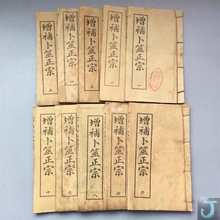 增補卜筮正宗
增補卜筮正宗
增補卜筮正宗
增補卜筮正宗
增補卜筮正宗
增補卜筮正宗
增補卜筮正宗
增補卜筮正宗
增補卜筮正宗
增補卜筮正宗